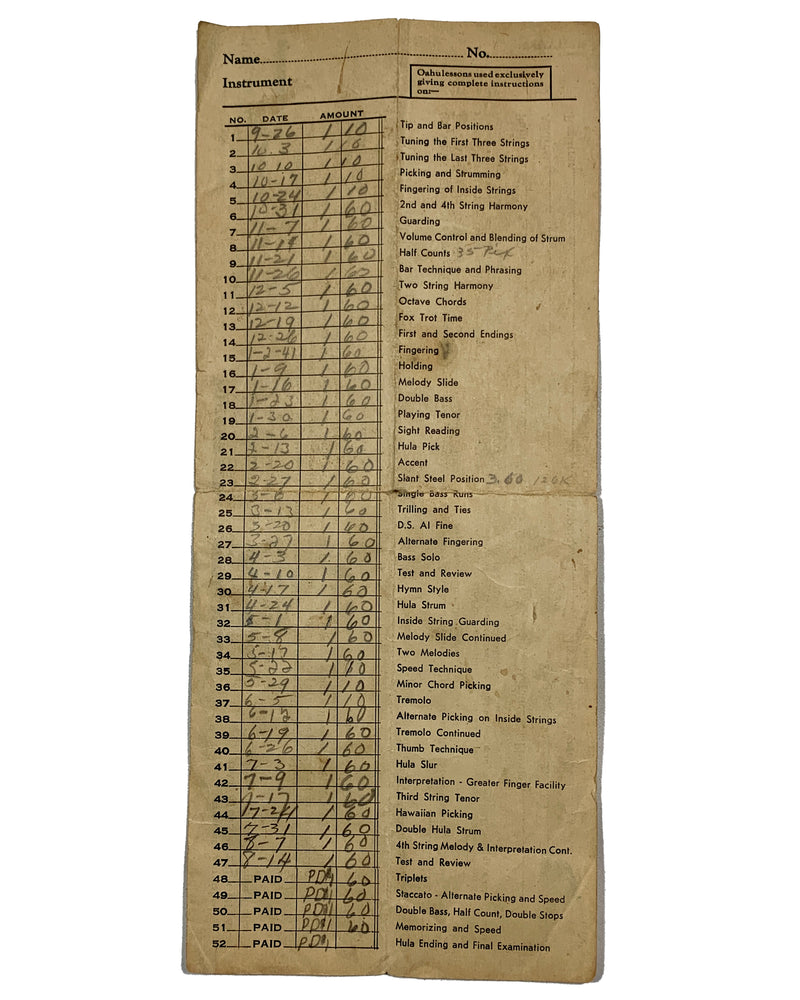 Name.................................................. No...............
Instrument
Oahu lessons used exclusively
giving complete instructions
on:—
NO. DATE AMOUNT
1 9-26 1 10 Tip and Bar Positions
2 10.3 1 10 Tuning the First Three Strings
3 10 10 1 10 Tuning the Last Three Strings
4 10-17 1 10 Picking and Strumming
5 10-24 1 10 Fingering of Inside Strings
6 10-31 1 60 2nd and 4th String Harmony
7 11-7 1 60 Guarding
8 11-14 1 60 Volume Control and Blending of Strum
9 11-21 1 60 Half Counts 35
10 11-26 1 60 Bar Technique and Phrasing
11 12-5 1 60 Two String Harmony
12 12-12 1 60 Octave Chords
13 12-19 1 60 Fox Trot Time
14 12-26 1 60 First and Second Endings
15 1-2-41 1 60 Fingering
16 1-9 1 60 Holding
17 1-16 1 60 Melody Slide
18 1-23 1 60 Double Bass
19 1-30 1 60 Playing Tenor
20 2-6 1 60 Sight Reading
21 2-13 1 60 Hula Pick
22 2-20 1 60 Accent
23 2-27 1 60 Slant Steel Position 3.60
24 3-6 1 60 Single Bass Runs
25 3-13 1 60 Trilling and Ties
26 3-20 1 60 D.S. Al Fine
27 3-27 1 60 Alternate Fingering
28 4-3 1 60 Bass Solo
29 4-10 1 60 Test and Review
30 4-17 1 60 Hymn Style
31 4-24 1 60 Hula Strum
32 5-1 1 60 Inside String Guarding
33 5-8 1 60 Melody Slide Continued
34 5-17 1 60 Two Melodies
35 5-22 1 10 Speed Technique
36 5-29 1 10 Minor Chord Picking
37 6-5 1 10 Tremolo
38 6-12 1 60 Alternate Picking on Inside Strings
39 6-19 1 60 Tremolo Continued
40 6-26 1 60 Thumb Technique
41 7-3 1 60 Hula Slur
42 7-9 1 60 Interpretation - Greater Finger Facility
43 7-17 1 60 Third String Tenor
44 7-24 1 60 Hawaiian Picking
45 7-31 1 60 Double Hula Strum
46 8-7 1 60 4th String Melody & Interpretation Cont.
47 8-14 1 60 Test and Review
48 PAID PD 60 Triplets
49 PAID PD 60 Staccato - Alternate Picking and Speed
50 PAID PD 60 Double Bass, Half Count, Double Stops
51 PAID PD 60 Memorizing and Speed
52 PAID PD Hula Ending and Final Examination